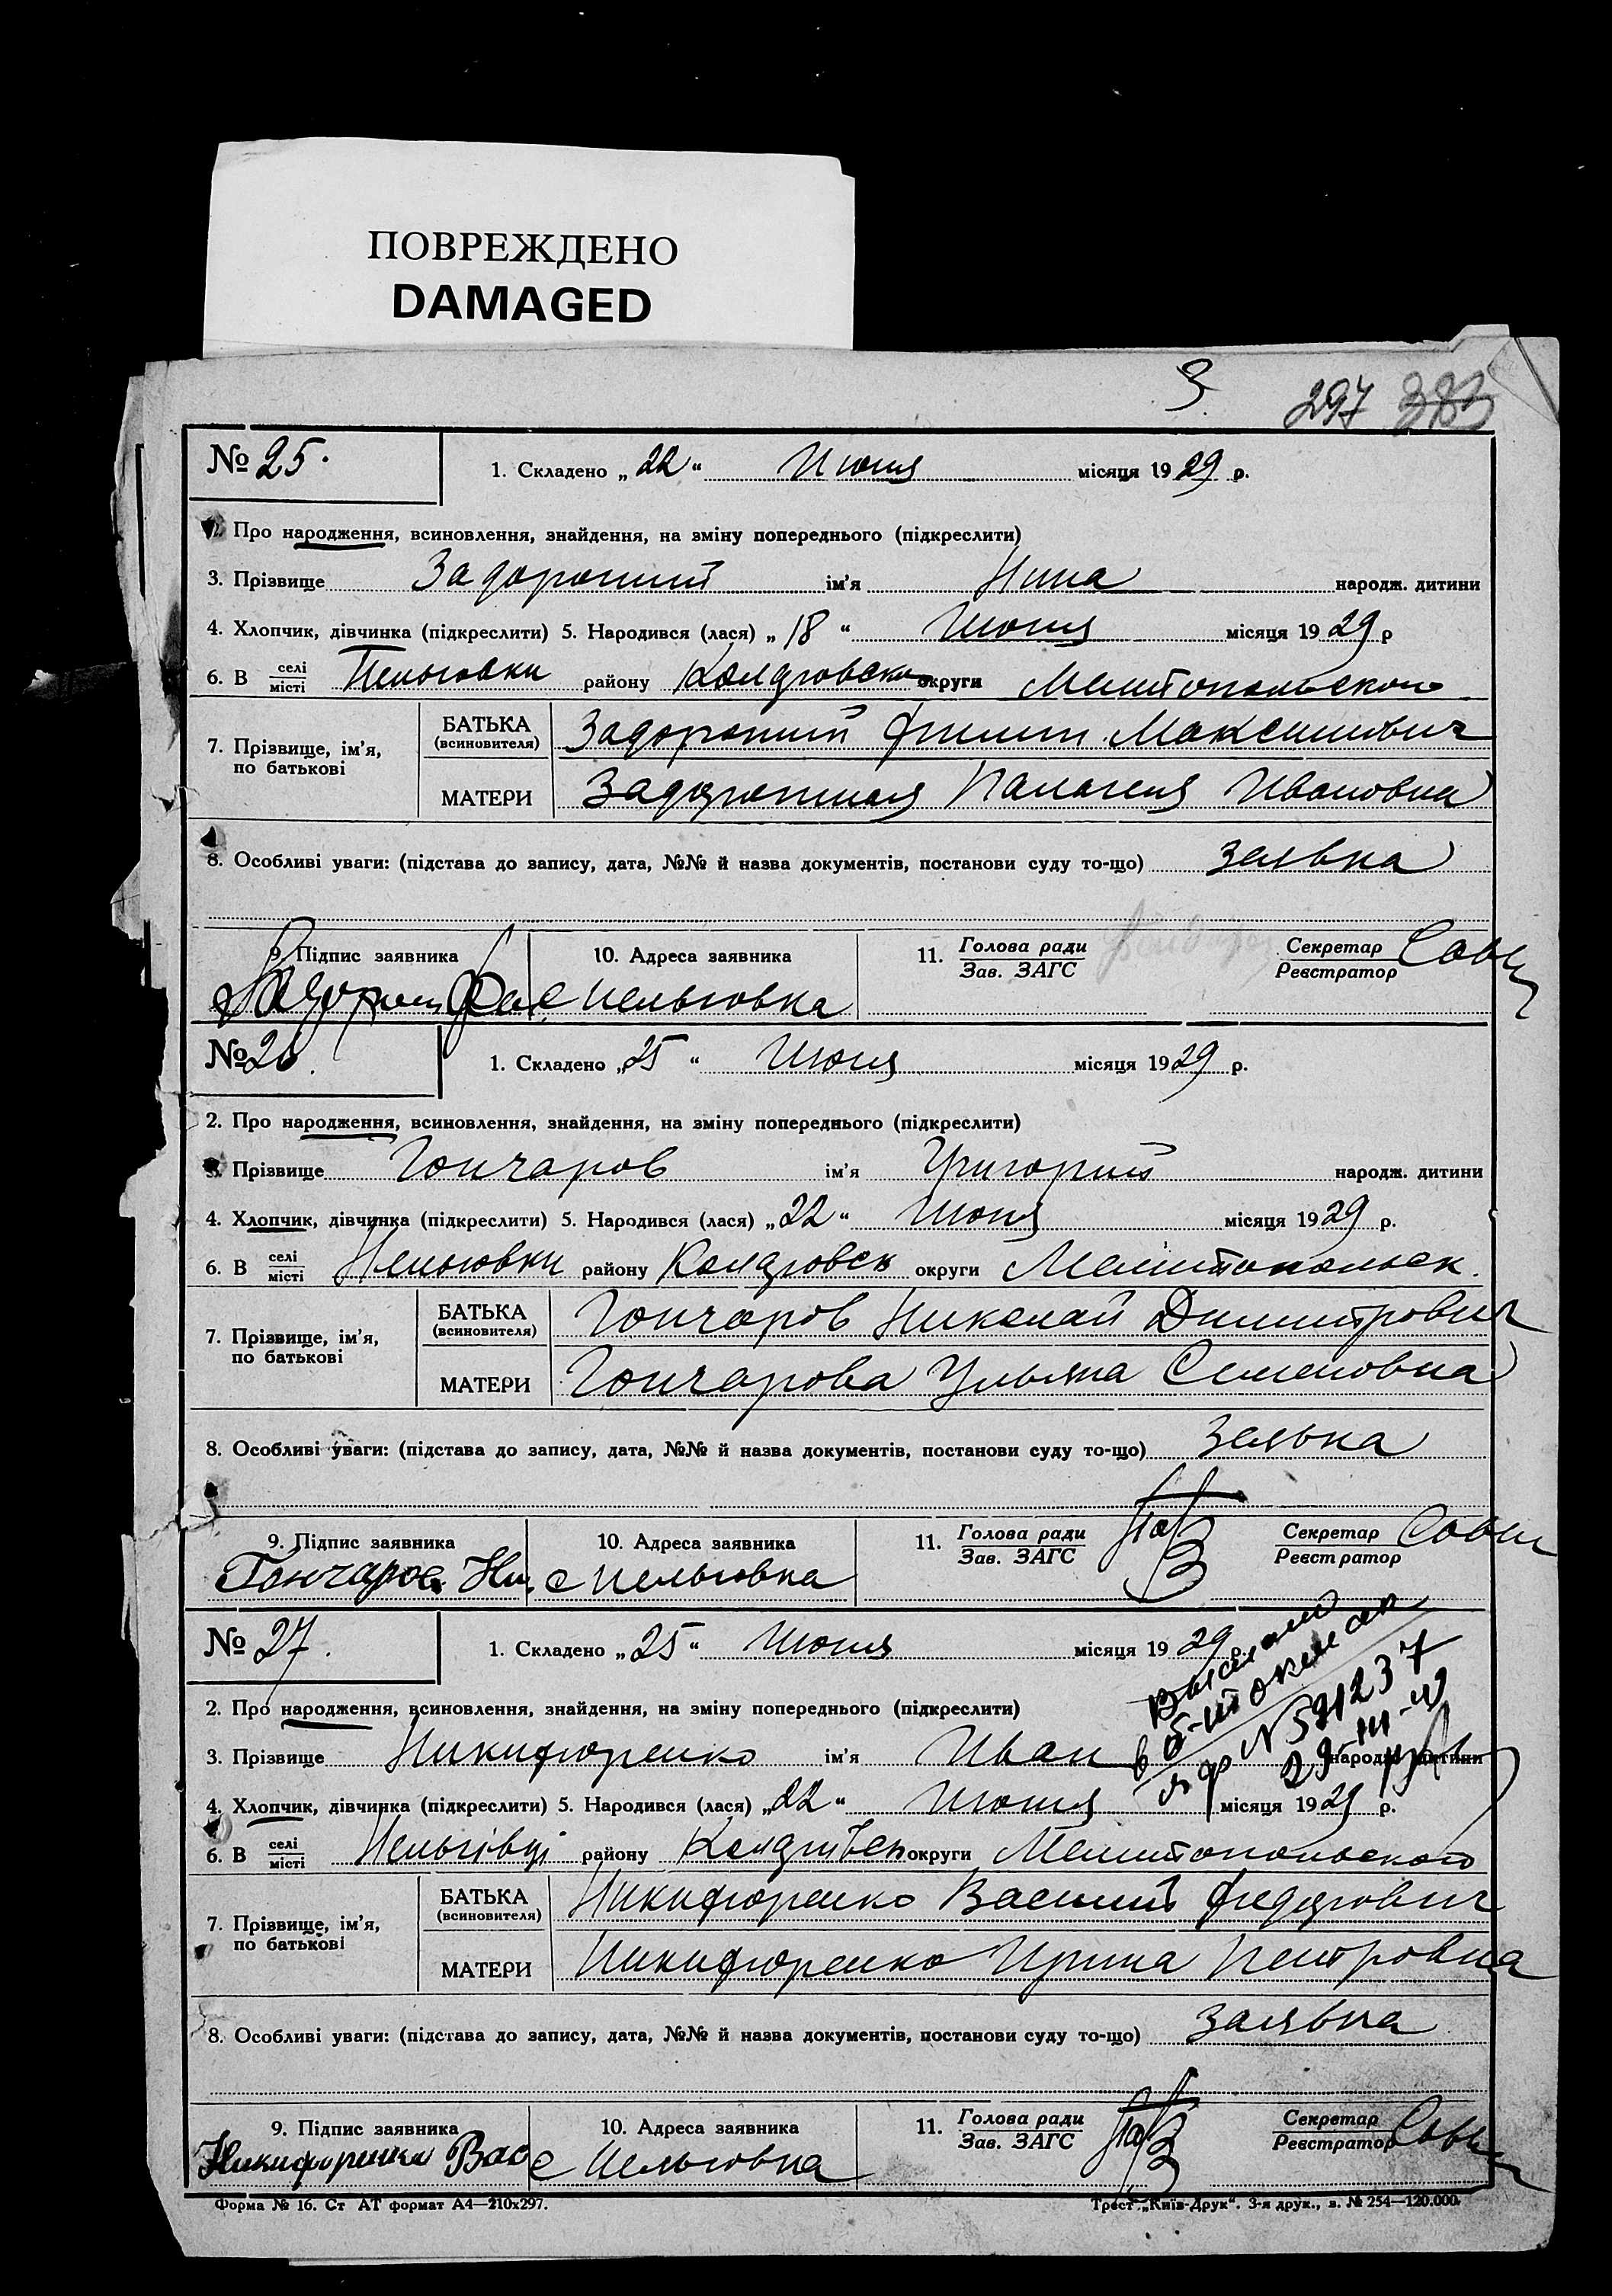 ПОВРЕЖДЕНО
DAMAGED
3
297 383
№ 25.
1. Складено „ 22 “ Июня місяця 19 29 р.
2. Про народження, всиновлення, знайдення, на зміну попереднього (підкреслити)
3. Прізвище Задорожний ім'я Нина народж. дитини
4. Хлопчик, дівчинка (підкреслити) 5. Народився (лася) „ 18 “ Июня місяця 19 29 р
6. В селі місті Нельговки району округи Мелитопольского
7. Прізвище, ім'я, по батькові
БАТЬКА (всиновителя) Задорожний Филип Максимович
МАТЕРИ Задорожная Палагея Ивановна
8. Особливі уваги: (підстава до запису, дата, №№ й назва документів, постанови суду то-що) заявка
9. Підпис заявника
10. Адреса заявника
11. Голова ради Зав. ЗАГС
Секретар Реєстратор
с Нельговка
№ 26.
1. Складено „ 25 “ Июня місяця 19 29 р.
2. Про народження, всиновлення, знайдення, на зміну попереднього (підкреслити)
3. Прізвище Гончаров ім'я Григорий народж. дитини
4. Хлопчик, дівчинка (підкреслити) 5. Народився (лася) „ 22 “ Июня місяця 19 29 р.
6. В селі місті Нельговки району округи Мелитопольск.
7. Прізвище, ім'я, по батькові
БАТЬКА (всиновителя) Гончаров Николай Димитрович
МАТЕРИ Гончарова Ульяна Семеновна
8. Особливі уваги: (підстава до запису, дата, №№ й назва документів, постанови суду то-що) заявка
9. Підпис заявника
10. Адреса заявника
11. Голова ради Зав. ЗАГС
Секретар Реєстратор
Гончаров Ни с Нельговка
№ 27.
1. Складено „ 25 “ Июня місяця 19 29 р.
2. Про народження, всиновлення, знайдення, на зміну попереднього (підкреслити)
N 591237
3. Прізвище Никифоренко ім'я Иван народж. дитини
4. Хлопчик, дівчинка (підкреслити) 5. Народився (лася) „ 22 “ Июня місяця 19 29 р.
6. В селі місті Нельгівці району округи Мелитопольского
7. Прізвище, ім'я, по батькові
БАТЬКА (всиновителя) Никифоренко Василий Федорович
МАТЕРИ Никифоренко Ирина Петровна
8. Особливі уваги: (підстава до запису, дата, №№ й назва документів, постанови суду то-що) заявка
9. Підпис заявника
10. Адреса заявника
11. Голова ради Зав. ЗАГС
Секретар Реєстратор
Никифоренко Вас с Нельговка
Форма № 16. Ст АТ формат А4—210х297.
Трест „Київ-Друк“. 3-я друк., в. № 254—120.000.